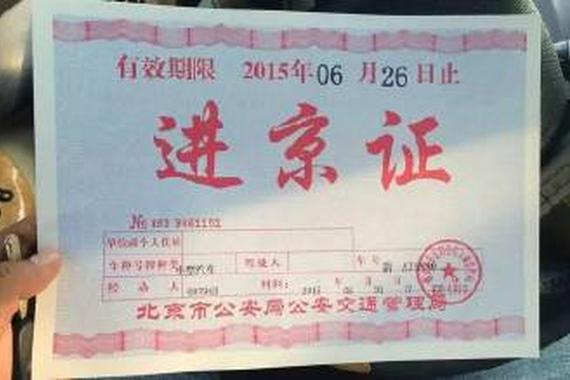 有效期限 2015年06月26日止
进京证
№
单位或个人住址
车种号牌种类 小型汽车 驾驶人 车号
经办人 时间: 年 月
北京市公安局公安交通管理局